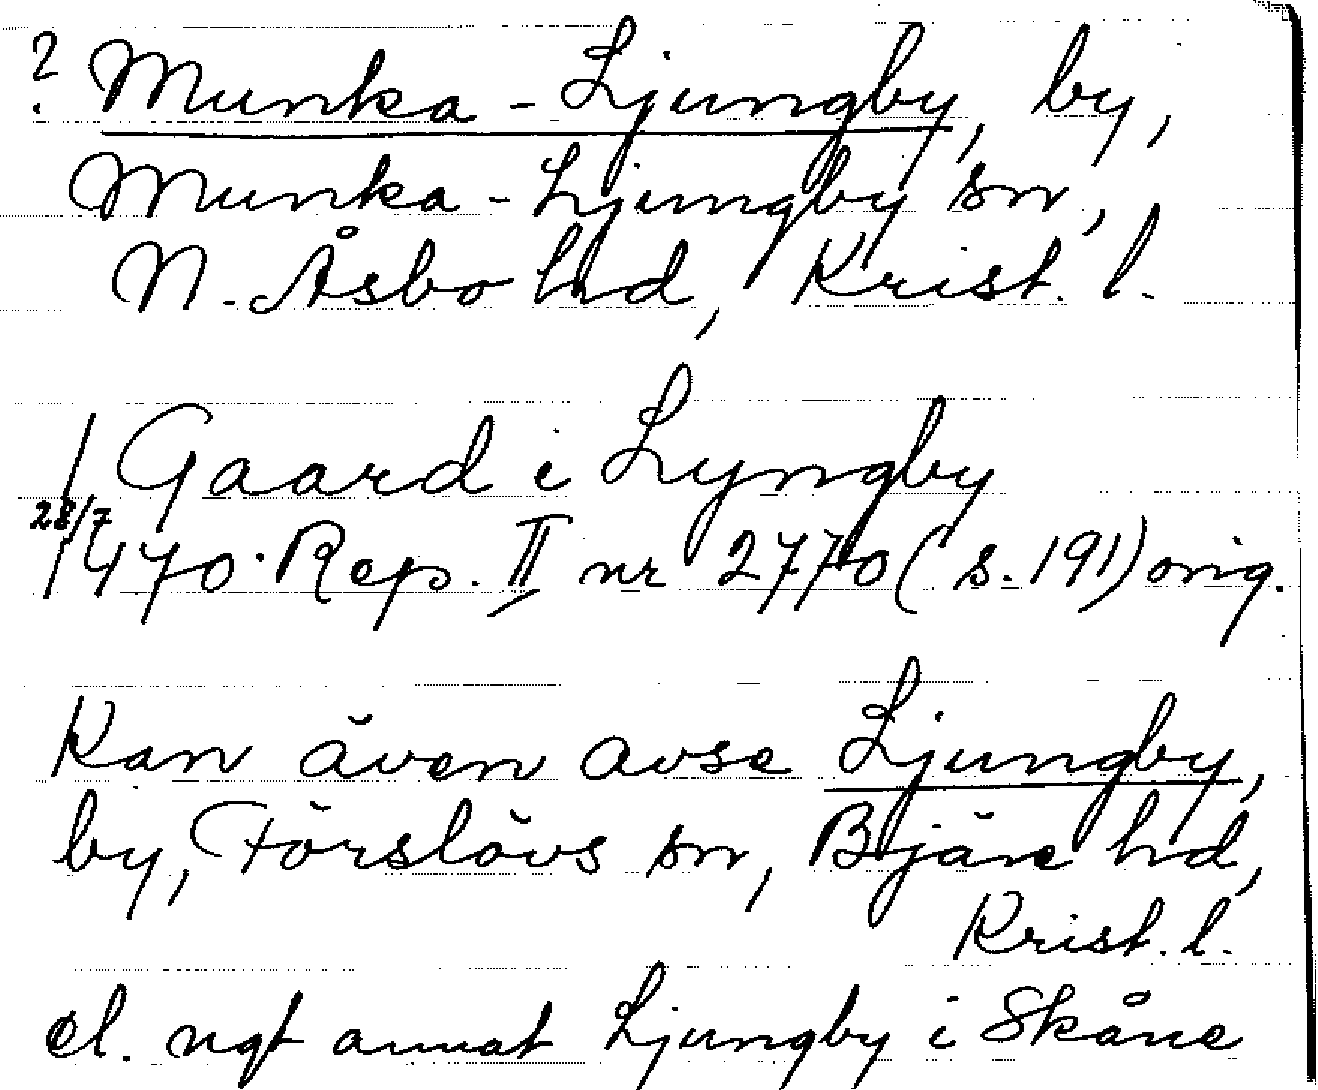 ? Munka-Ljungby, by,
Munka-Ljungby sn,
N. Åsbo hd, Krist. l.
/ Gaard i Lyngby
28/7
1470. Rep. II nr 2770 (s. 191) orig.
Kan även avse Ljungby,
by, Förslövs sn, Bjäre hd,
Krist. l.
el. ngt annat Ljungby i Skåne